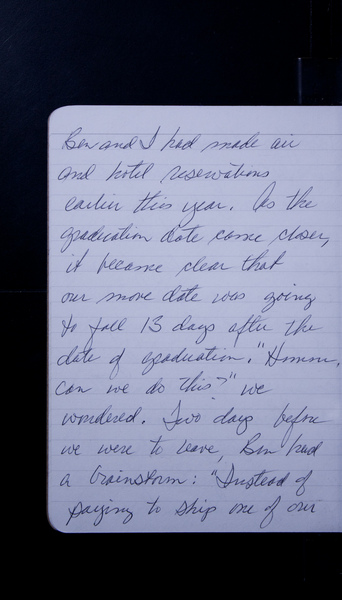 Ben and I had made air
and hotel reservations
earlier this year. As the
graduation date came closer,
it became clear that
our move date was going
to fall 13 days after the
date of graduation. "Hmmm,
can we do this?" we
wondered. Two days before
we were to leave, Ben had
a brainstorm: "Instead of
paying to ship one of our